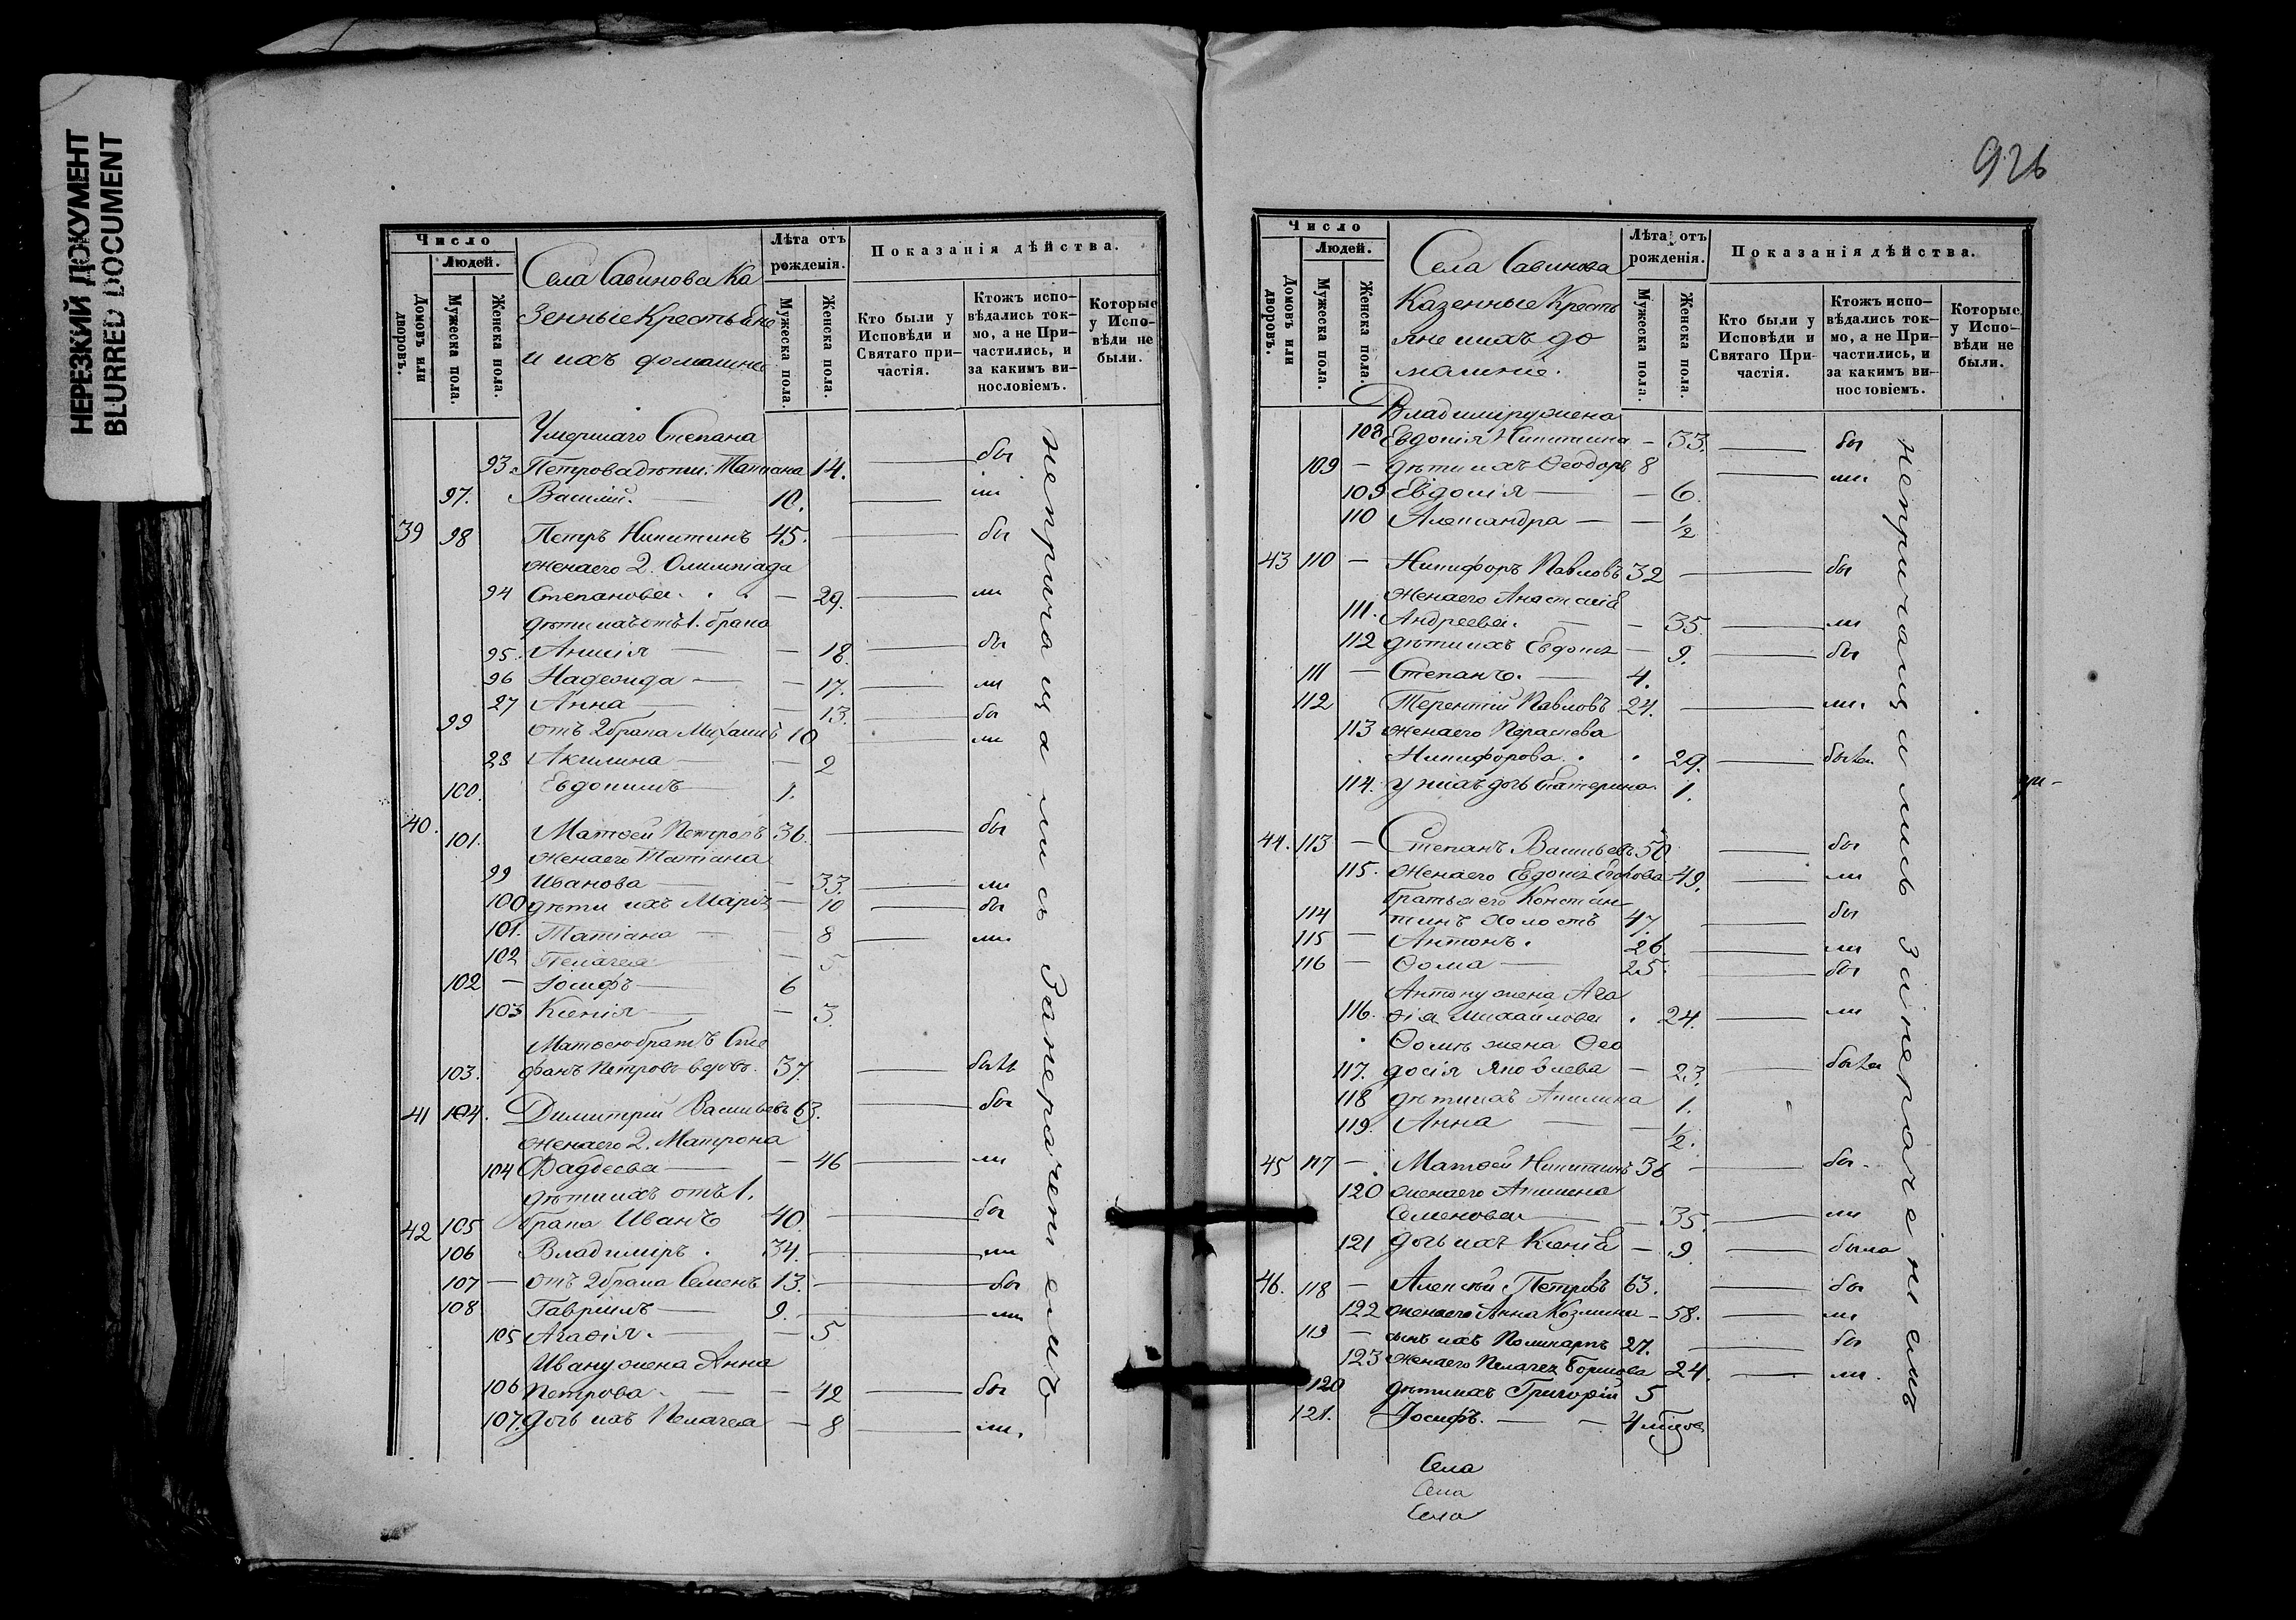 НЕРЕЗКИЙ ДОКУМЕНТ
BLURRED DOCUMENT
Число
Людей.
Домовъ или дворовъ.
Мужеска пола.
Женска пола.
Села Савинова Ка
зенные Крестьяне
и ихъ домашніе
Лѣта отъ рожденія.
Мужеска пола.
Женска пола.
Показанія дѣйства.
Кто были у Исповѣди и Святаго при-частія.
Ктожъ испо-вѣдались ток-мо, а не При-частились, и за какимъ ви-нословіемъ.
Которые у Испо-вѣди не были.
Умершаго Степана
93. Петрова дѣти: Татiана 14. бы
97. Василій. 10. ли
39 98 Петръ Никитинъ 45. бы
жена его 2. Олимпіада
94 Степанова. 29. ли
дѣти ихъ отъ 1. брака
95. Анисія 18. бы
96 Надежда 17. ли
27 Анна 13. бы
99 отъ 2 брака Михаилъ 10 ли
28 Акилина 2
100. Евдокимъ 1.
40. 101. Матѳей Петровъ 36. бы
жена его Татіана
99 Иванова 33. ли
100 дѣти ихъ Марія 10 бы
101. Татіана 8 ли
102 Пелагея 5.
102 Іосифъ 6
103 Ксенія 3.
Матѳею братъ Сте
103. фанъ Петровъ вдовъ. 37. былъ
41 104. Димитрій Васильевъ 63. бы
жена его 2. Матрона
104 Фаддеева 46 ли
дѣти ихъ отъ 1.
42 105 брака Иванъ 40. бы
106 Владиміръ. 34. ли
107 отъ 2 брака Семенъ 13. бы
108 Гавріилъ 9. ли
105 Агафія. 5
Ивану жена Анна
106 Петрова. 42 бы
107. дочь ихъ Пелагея 8 ли.
непричащались За нерачениемъ
926
Число
Людей.
Домовъ или дворовъ.
Мужеска пола.
Женска пола.
Села Савинова
Казенные Кресть
яне и ихъ до
машніе.
Лѣта отъ рожденія.
Мужеска пола.
Женска пола.
Показанія дѣйства.
Кто были у Исповѣди и Святаго При-частія.
Ктожъ испо-вѣдались ток-мо, а не При-частились, и за какимъ ви-нословіемъ.
Которые у Испо-вѣди не были.
Владиміру жена
108 Евдокія Никитина 33. бы
109 дѣти ихъ Ѳеодоръ 8 ли
109 Евдокія 6.
110 Александра 1/2
43 110 Никифоръ Павловъ 32 бы
жена его Анастасія
111. Андреева. 35. ли
112 дѣти ихъ Евдокія 9. бы
111 Степанъ. 4.
112 Терентій Павловъ 24. ли.
113 жена его Параскева
Никифорова. 29. была
114. у нихъ дочь Екатерина 1.
44. 113 Степанъ Васильевъ 50 бы
115. жена его Евдокія Егорова 49. ли
братья его Констан
114 тинъ холостъ 47. бы
115 Антонъ. 26 ли
116 Ѳома 25. бы
Антону жена Ага
116. ѳія Михайлова 24. ли
Ѳомѣ жена Ѳео
117. досія Яковлева 23. была
118 дѣти ихъ Акилина 1.
119. Анна 1/2.
45 117 Матѳей Никитинъ 36 бы.
120 жена его Акилина
Семенова 35. ли
121 дочь ихъ Ксенія 9 была
46. 118 Алексѣй Петровъ 63. бы
122 жена его Анна Козмина 58. ли
119 сынъ ихъ Поликарпъ 27. бы
123 жена его Пелагея Борисова 24. ли.
120 дѣти ихъ Григорій 5
121. Іосифъ. 4 мѣсяцов
непричащались За нерачениемъ
Села
Села
Села